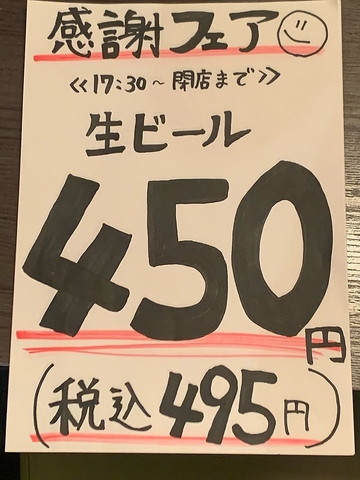 感謝フェア
≪17:30~閉店まで≫
生ビール
450円
(税込495円)